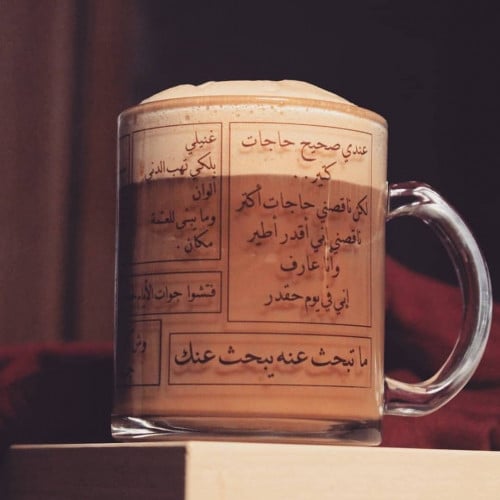 عندي صحيح حاجات
كتير..
لكن ناقصني حاجات أكتر
ناقصني إني أقدر أطير
وأنا عارف
إني في يوم حقدر
غنيلي
بلكي تهب الدني
ألوان
وما يبقى للعتمة
مكان .
فتشوا جوات
ما تبحث عنه يبحث عنك